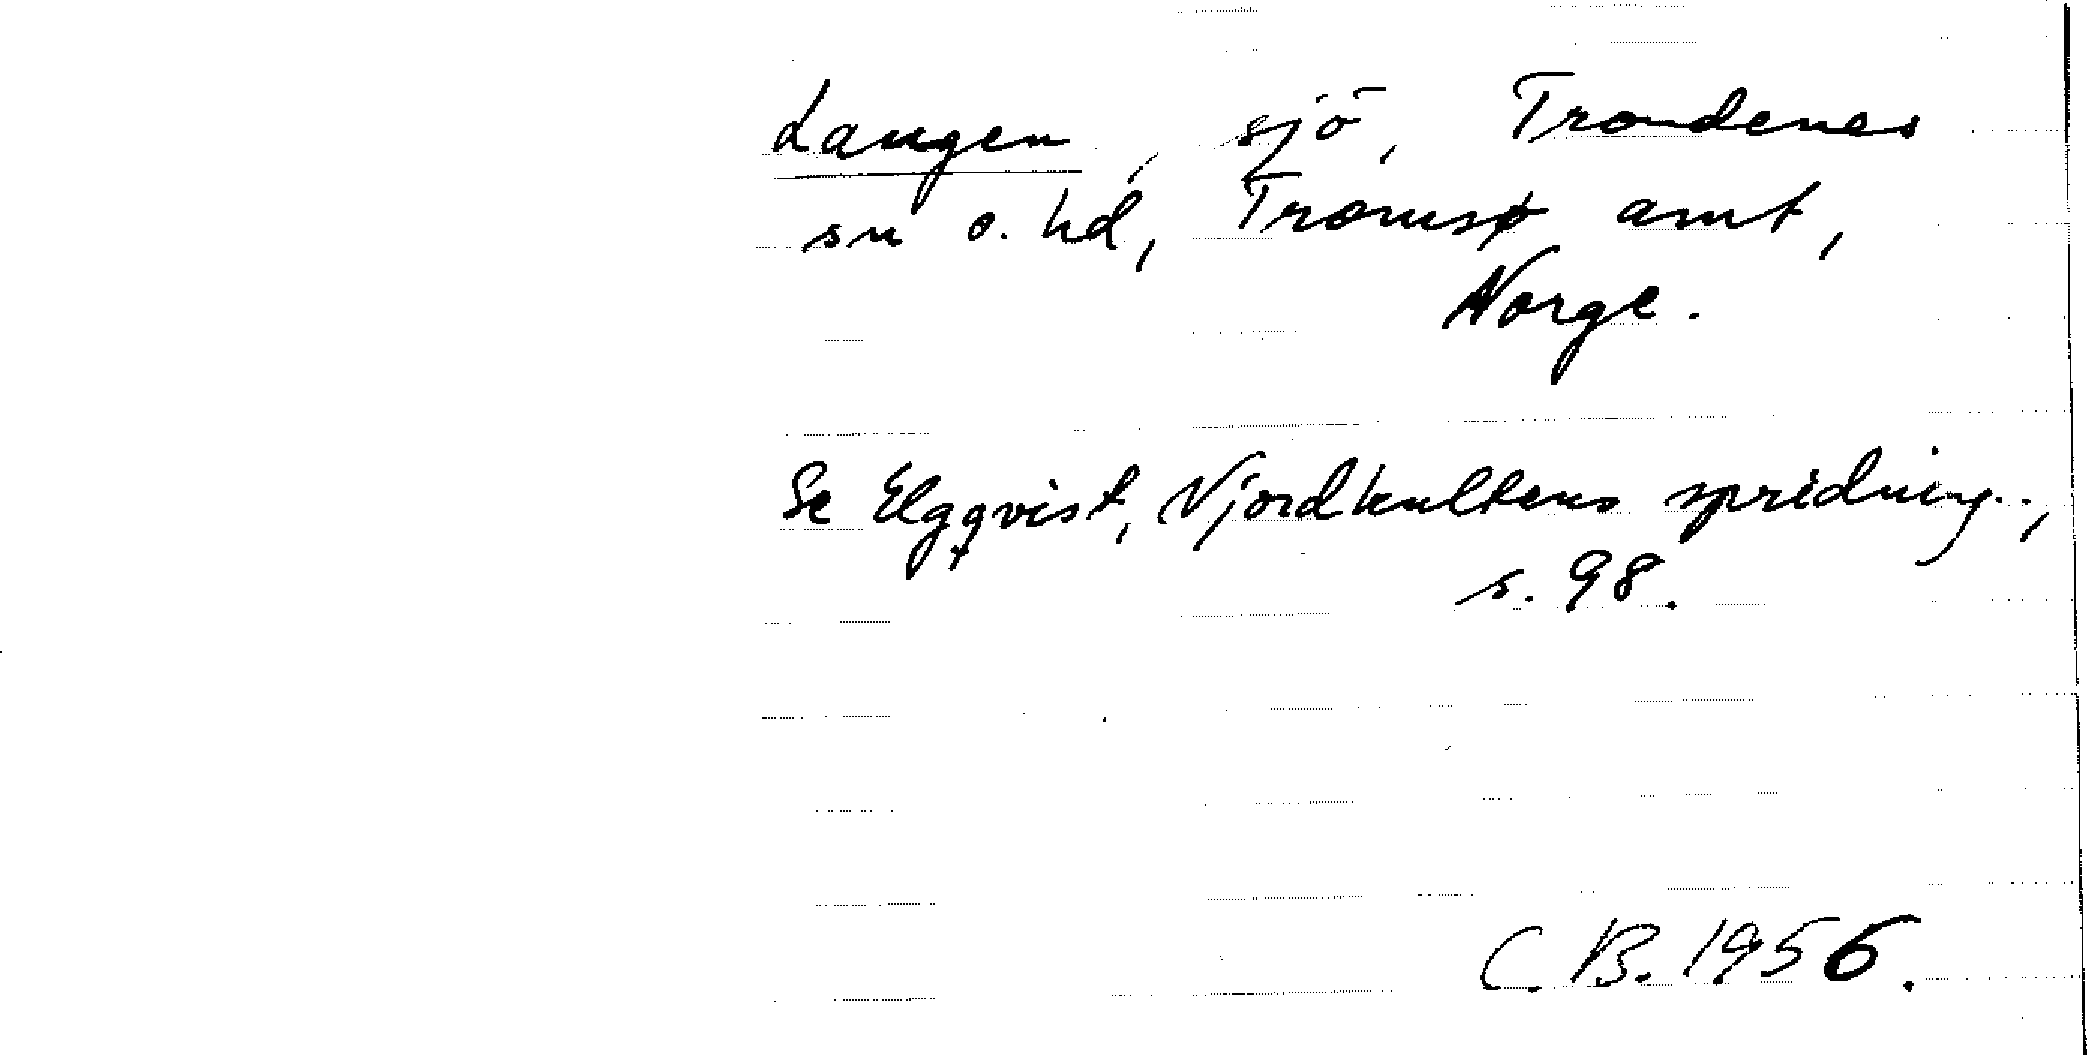 Langen, sjö, Trondenes
sn o. hd, Tromsø amt,
Norge.
Se Elgqvist, Njordkultens spridning..,
s. 98.
C. B. 1956.